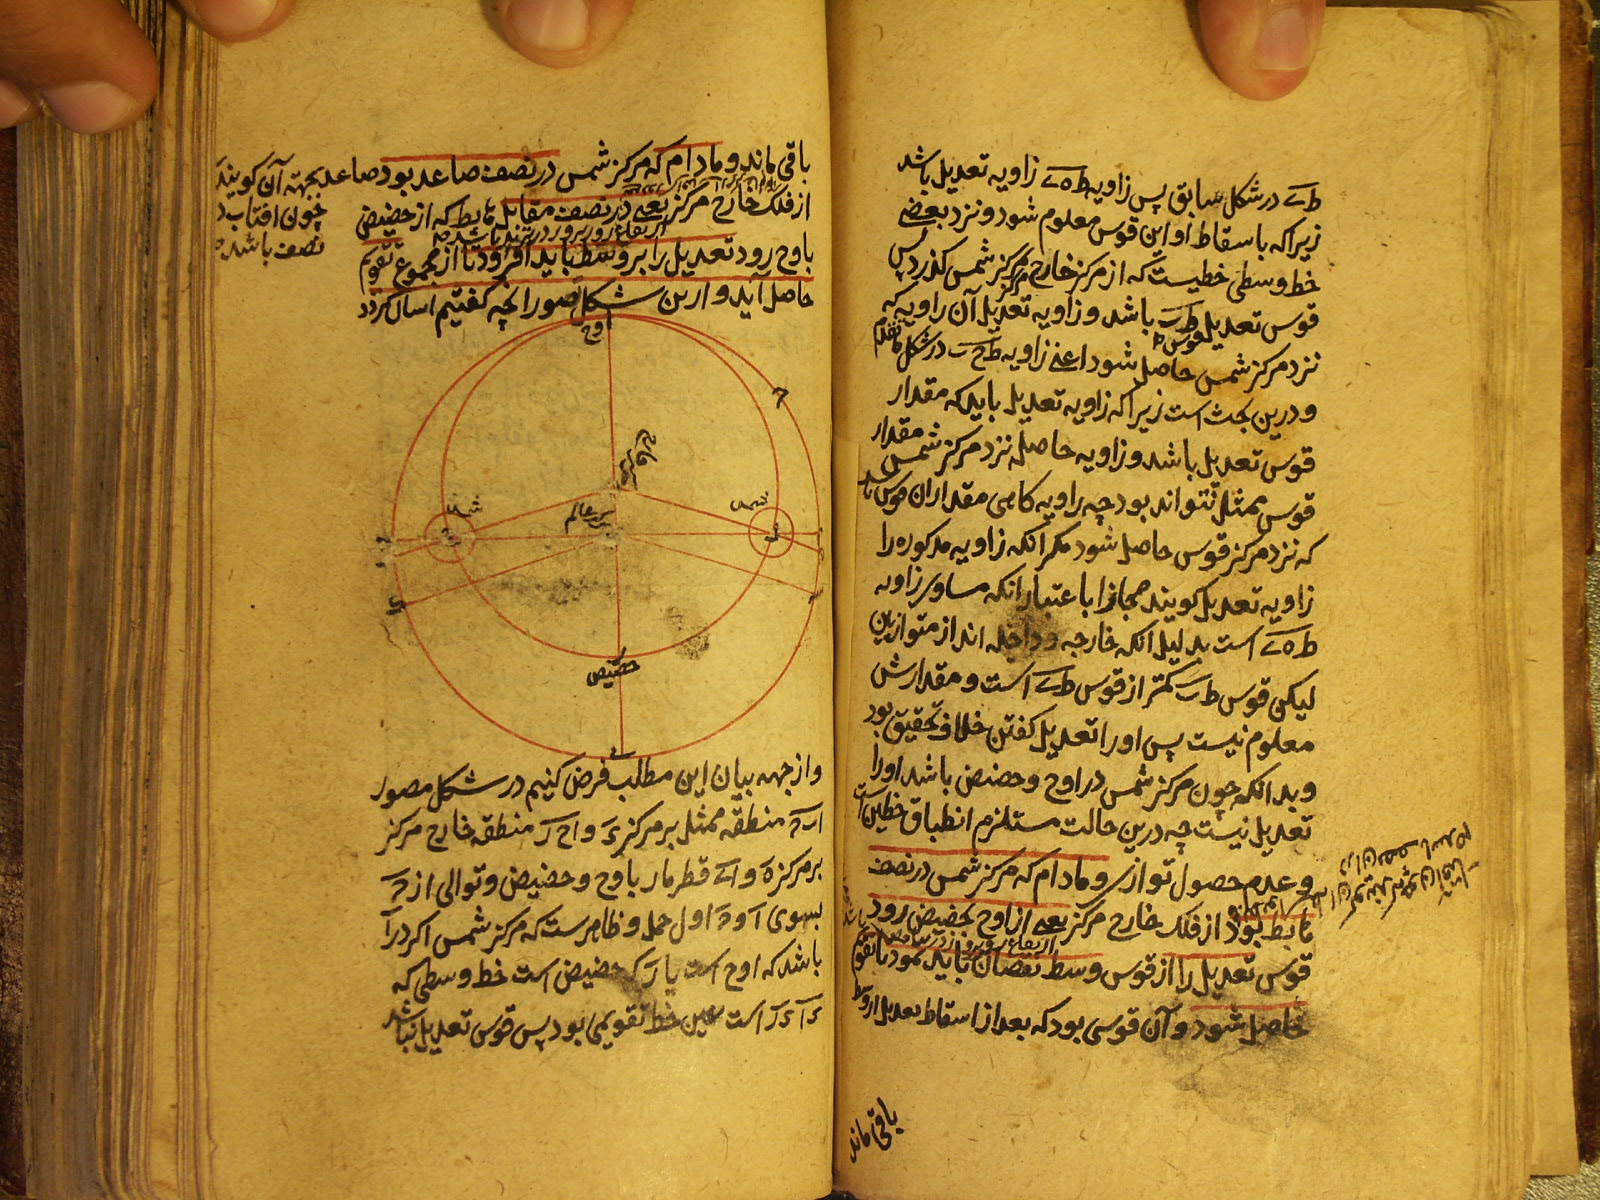 طے در شکل سابق پس زاویه طەے زاویه تعدیل باشد
زیرا که باسقاط او این قوس معلوم شود و نزد بعضے
خط وسطی خطیست که از مرکز خارج مرکز بمرکز شمس کذرد پس
قوس تعدیل قوس طب باشد و زاویه تعدیل آن زاویه که
نزد مرکز شمس حاصل شود اعنے زاویه طحب در شکل ما تقدم
و درین بحث است زیرا که زاویه تعدیل باید که مقدار
قوس تعدیل باشد و زاویه حاصله نزد مرکز شمس مقدار
قوس ممثل نتواند بود چه زاویه کاهی مقدار ان قوس باشد
که نزد مرکز قوس حاصل شود مکر انکه زاویه مذکوره را
زاویه تعدیل کویند مجازا باعتبار انکه مساوی زاویه
طەے است بدلیل انکه خارجه و داخله اند از متوازیین
لیکن قوس طب کمتر از قوس طے است و مقدارش
معلوم نیست پس او را تعدیل کفتن خلاف تحقیق بود
و بدانکه چون مرکز شمس در اوج و حضیض باشد او را
تعدیل نیست چه درین حالت مستلزم انطباق خطین است
و عدم حصول توازی و مادام که مرکز شمس در نصف
هابط بود از فلک خارج مرکز یعنے از اوج بحضیض رود
قوس تعدیل را از قوس وسط نقصان باید نمود تا تقویم
حاصل شود و آن قوسی بود که بعد از اسقاط تعدیل از وسط
باقی ماند
باقی ماند و مادام که مرکز شمس در نصف صاعد بود صاعد بجهته آن کویند
چون افتاب د
نصف باشد
از فلک خارج مرکز یعنے در نصف مقابل هابط که از حضیض
باوج رود تعدیل را بر وسط باید افزود تا از مجموع تقویم
حاصل آید و ازین شکل مصور انچه کفتیم اسان کردد
اوج
ح
مرکز خارج
شمس
مرکز عالم
شمس
حضیض
و از جهه بیان این مطلب فرض کنیم در شکل مصور
منطقه ممثل بر مرکز ء و اح ر منطقه خارج مرکز
بر مرکز ه و اے قطر مار باوج و حضیض و توالی از
بسوی آ و اول حمل و ظاهرست که مرکز شمس اکر در آ
باشد که اوج است یا ر که حضیض است خط وسطی که
است بعین خط تقویمی بود پس قوس تعدیل نباشد